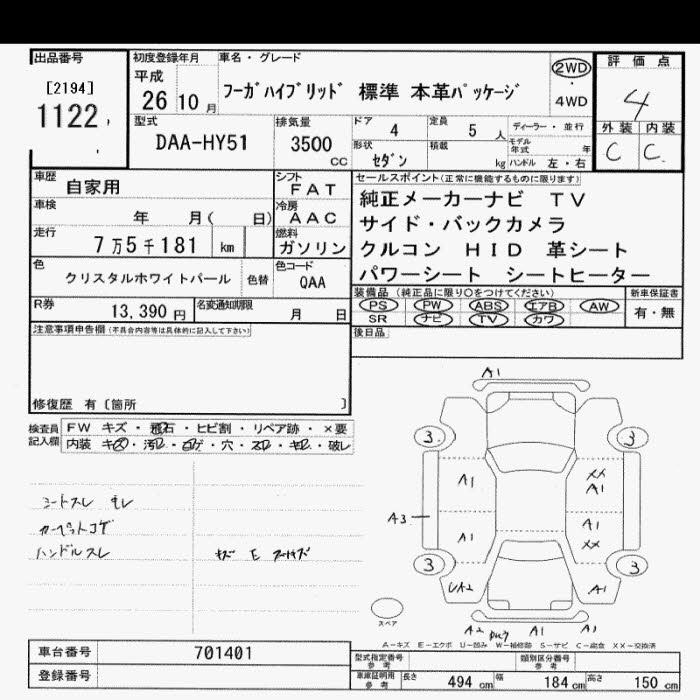 出品番号 初度登録年月 車名・グレード 評価点
[2194] 平成 2WD
1122 26 10月 フーガハイブリッド 標準 本革パッケージ ・ 4
4WD
型式 排気量 ドア 4 定員 5 人 ディーラー・並行 外装 内装
DAA-HY51 3500 cc 形状 セダン 積載 kg モデル年式 年 C C.
ハンドル 左・右
車歴 自家用 シフト FAT セールスポイント(正常に機能するものに限ります)
車検 年 月( 日) 冷房 AAC 純正メーカーナビ TV
サイド・バックカメラ
走行 7万5千181 km 燃料 ガソリン クルコン HID 革シート
色 クリスタルホワイトパール 色替 色コード QAA パワーシート シートヒーター
装備品(純正品に限り○をつけてください) 新車保証書
R券 13,390円 名変通知期限 月 日 PS PW ABS エアB AW 有・無
SR ナビ TV カワ
注意事項申告欄(不具合内容等は具体的に記入して下さい) 後日品
修復歴 有〔箇所 〕
検査員記入欄 FW キズ・飛石・ヒビ割・リペア跡・×要
内装 キズ・汚レ・コゲ・穴・スレ・キレ・破レ
A1
3 3
A1 XX A1
A3
A1 A1 XX
3 3
UA2 A1
シートスレ モレ
カーペットコゲ
ハンドルスレ
スペア
A2 A1 A1
A-キズ E-エクボ U-凹み W-補修跡 S-サビ C-腐食 XX-交換済
車台番号 701401 型式指定番号 参考 類別区分番号 参考
登録番号 車庫証明用 参考 長さ 494 cm 幅 184 cm 高さ 150 cm